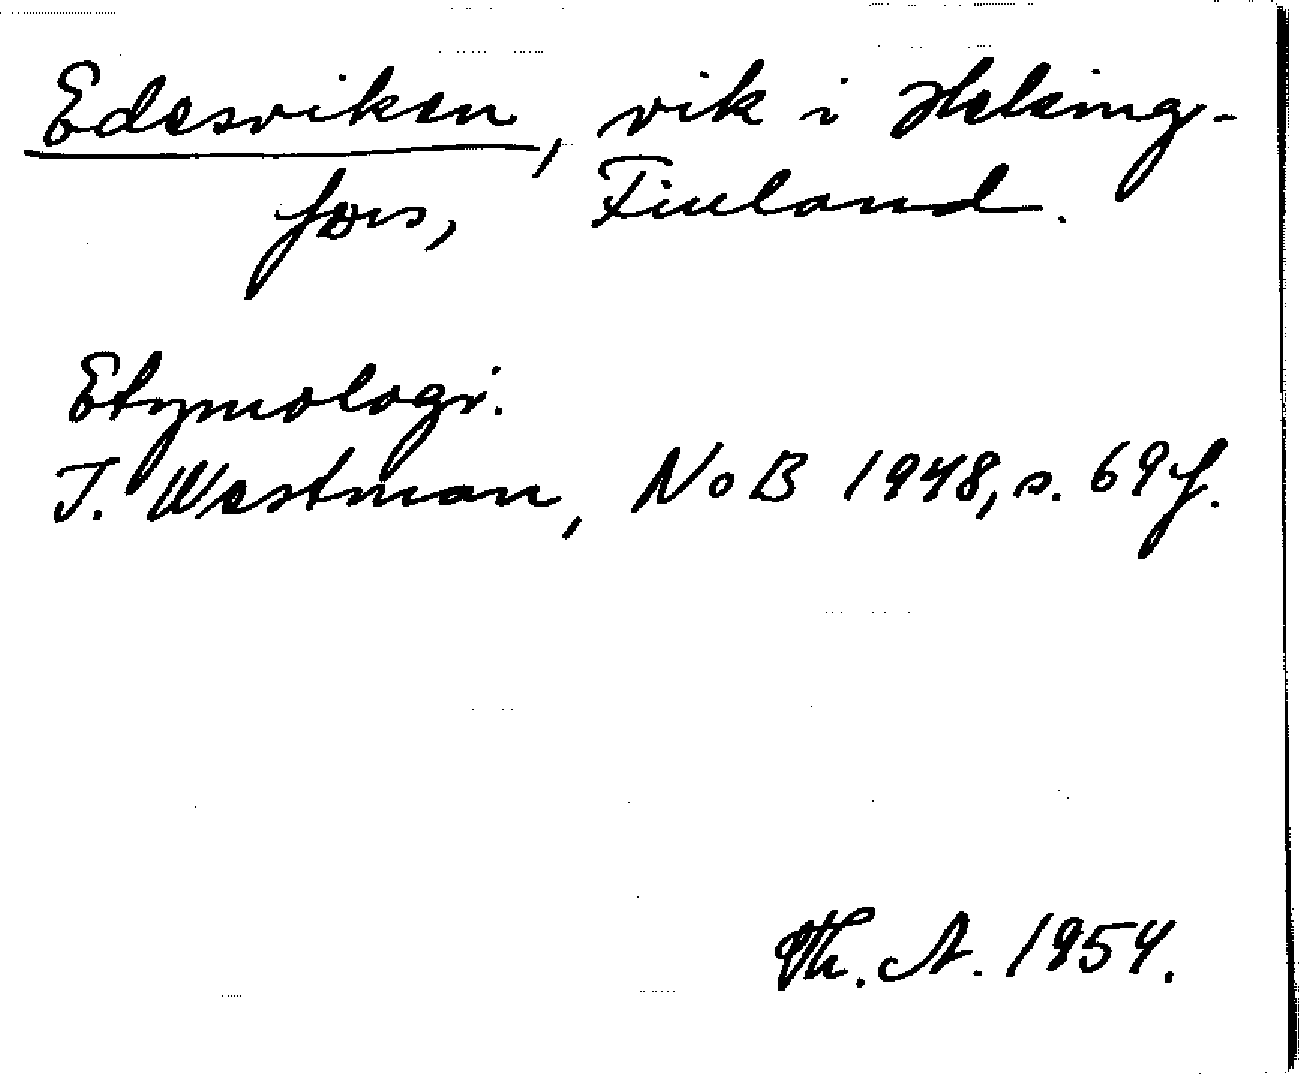 Edesviken, vik i Helsing-
fors, Finland.
Etymologi.
I. Westman, NoB 1948, s. 69 f.
Th. A. 1954.